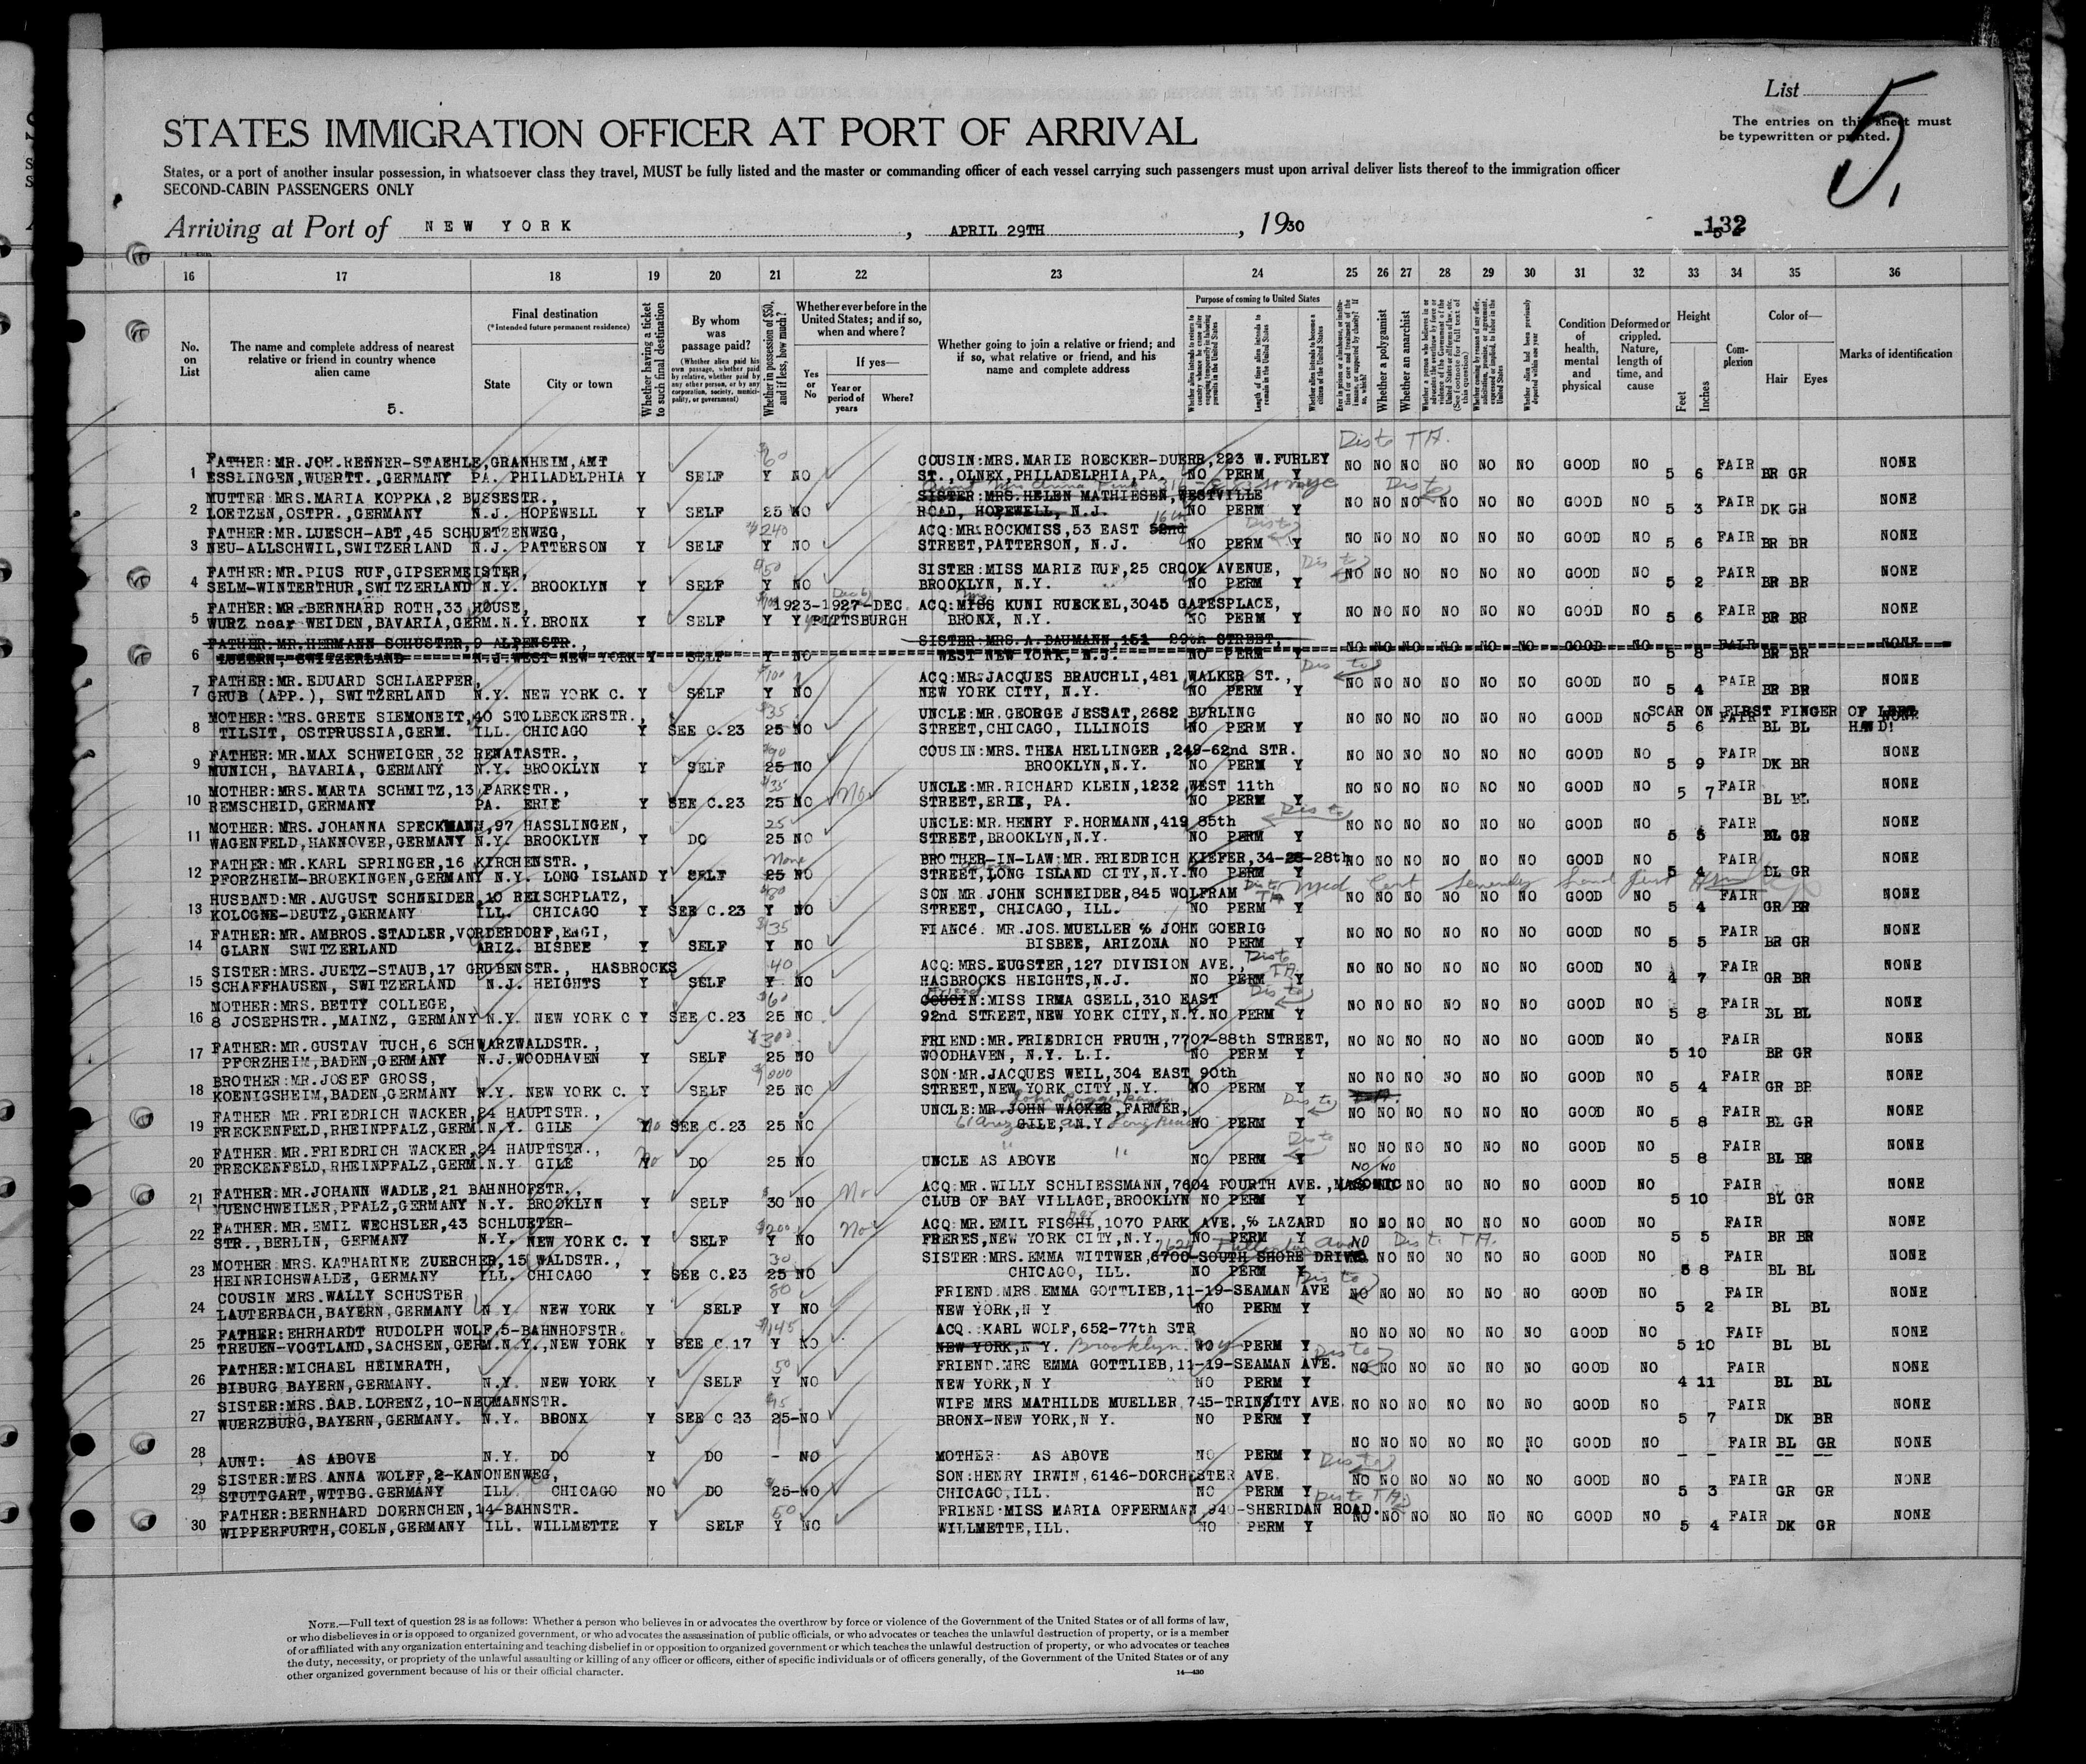 List 5.
The entries on this sheet must
be typewritten or printed.
STATES IMMIGRATION OFFICER AT PORT OF ARRIVAL
States, or a port of another insular possession, in whatsoever class they travel, MUST be fully listed and the master or commanding officer of each vessel carrying such passengers must upon arrival deliver lists thereof to the immigration officer
SECOND-CABIN PASSENGERS ONLY
Arriving at Port of NEW YORK , APRIL 29TH , 1930
132
16 17 18 19 20 21 22 23 24 25 26 27 28 29 30 31 32 33 34 35 36
No. on List
The name and complete address of nearest relative or friend in country whence alien came
5.
Final destination
(*Intended future permanent residence)
State City or town
Whether having a ticket to such final destination
By whom was passage paid?
(Whether alien paid his own passage, whether paid by relative, whether paid by any other person, or by any corporation, society, municipality, or government)
Whether in possession of $50, and if less, how much?
Whether ever before in the United States; and if so, when and where?
Yes or No
If yes—
Year or period of years
Where?
Whether going to join a relative or friend; and if so, what relative or friend, and his name and complete address
Purpose of coming to United States
Length of time alien intends to remain in the United States
Whether alien intends to become a citizen of the United States
Whether a polygamist
Whether an anarchist
Condition of health, mental and physical
Deformed or crippled. Nature, length of time, and cause
Height
Feet Inches
Complexion
Color of—
Hair Eyes
Marks of identification
Dis to TA.
FATHER:MR.JOH.RENNER-STAEHLE,GRANHEIM,AMT COUSIN:MRS.MARIE ROECKER-DUERR,223 W.FURLEY
1 ESSLINGEN,WUERTT.,GERMANY PA. PHILADELPHIA Y SELF Y NO ST.,OLNEX,PHILADELPHIA,PA. NO PERM Y NO NO NO NO NO NO GOOD NO 5 6 FAIR BR GR NONE
MUTTER MRS.MARIA KOPPKA,2 BUSSESTR., SISTER:MRS.HELEN MATHIESEN,WESTVILLE
2 LOETZEN,OSTPR.,GERMANY N.J. HOPEWELL Y SELF 25 NO ROAD, HOPEWELL, N.J. NO PERM Y NO NO NO NO NO NO GOOD NO 5 3 FAIR DK GR NONE
FATHER:MR.LUESCH-ABT,45 SCHUETZENWEG, $240 ACQ:MR.ROCKMISS,53 EAST 52nd 16th
3 NEU-ALLSCHWIL,SWITZERLAND N.J. PATTERSON Y SELF Y NO STREET,PATTERSON, N.J. NO PERM Y NO NO NO NO NO NO GOOD NO 5 6 FAIR BR BR NONE
FATHER:MR.PIUS RUF,GIPSERMEISTER, SISTER:MISS MARIE RUF,25 CROOK AVENUE,
4 SELM-WINTERTHUR,SWITZERLAND N.Y. BROOKLYN Y SELF Y NO BROOKLYN, N.Y. NO PERM Y NO NO NO NO NO NO GOOD NO 5 2 FAIR BR BR NONE
FATHER:MR.BERNHARD ROTH,33 HOUSE, 1923-1927-DEC. ACQ:MISS KUNI RUECKEL,3045 GATESPLACE,
5 WURZ near WEIDEN,BAVARIA,GERM.N.Y.BRONX Y SELF Y Y PITTSBURGH BRONX, N.Y. NO PERM Y NO NO NO NO NO NO GOOD NO 5 6 FAIR BR BR NONE
FATHER.MR.HERMANN SCHUSTER,9 ALPENSTR., SISTER-MRS.A.BAUMANN,151 29th STREET,
6 LUZERN, SWITZERLAND N.J.WEST NEW YORK Y SELF Y NO WEST NEW YORK, N.J. NO PERM Y NO NO NO NO NO NO GOOD NO 5 8 FAIR BR BR NONE
FATHER:MR.EDUARD SCHLAEPFER, $100 ACQ:MR.JACQUES BRAUCHLI,481 WALKER ST.,
7 GRUB (APP.), SWITZERLAND N.Y. NEW YORK C. Y SELF Y NO NEW YORK CITY, N.Y. NO PERM Y NO NO NO NO NO NO GOOD NO 5 4 FAIR BR BR NONE
MOTHER:MRS.GRETE SIEMONEIT,40 STOLBECKERSTR., $35 UNCLE:MR.GEORGE JESSAT,2682 BURLING SCAR ON FIRST FINGER OF LEFT
8 TILSIT, OSTPRUSSIA,GERM. ILL. CHICAGO Y SEE C.23 25 NO STREET,CHICAGO, ILLINOIS NO PERM Y NO NO NO NO NO NO GOOD NO 5 6 FAIR BL BL HAND!
FATHER:MR.MAX SCHWEIGER,32 RENATASTR., COUSIN:MRS.THEA HELLINGER,249-62nd STR.
9 MUNICH, BAVARIA, GERMANY N.Y. BROOKLYN Y SELF 25 NO BROOKLYN,N.Y. NO PERM Y NO NO NO NO NO NO GOOD NO 5 9 FAIR DK BR NONE
MOTHER:MRS.MARTA SCHMITZ,13,PARKSTR., $35 UNCLE:MR.RICHARD KLEIN,1232 WEST 11th
10 REMSCHEID,GERMANY PA. ERIE Y SEE C.23 25 NO No STREET,ERIE, PA. NO PERM Y NO NO NO NO NO NO GOOD NO 5 7 FAIR BL BL NONE
MOTHER:MRS.JOHANNA SPECKMANN,97 HASSLINGEN, 25 UNCLE:MR.HENRY F.HORMANN,419 85th
11 WAGENFELD,HANNOVER,GERMANY N.Y. BROOKLYN Y DO 25 NO STREET,BROOKLYN,N.Y. NO PERM Y NO NO NO NO NO NO GOOD NO 5 5 FAIR BL GR NONE
FATHER:MR.KARL SPRINGER,16 KIRCHENSTR., None BROTHER-IN-LAW:MR.FRIEDRICH KIEFER,34-28-28th
12 PFORZHEIM-BROEKINGEN,GERMANY N.Y. LONG ISLAND Y SELF 25 NO STREET,LONG ISLAND CITY,N.Y. NO PERM Y NO NO NO NO NO NO GOOD NO 5 4 FAIR DL GR NONE
HUSBAND:MR.AUGUST SCHNEIDER,10 REISCHPLATZ, SON MR.JOHN SCHNEIDER,845 WOLFRAM Med Cert
13 KOLOGNE-DEUTZ,GERMANY ILL. CHICAGO Y SEE C.23 Y NO STREET, CHICAGO, ILL. NO PERM Y NO NO NO NO NO NO GOOD NO 5 4 FAIR GR BR NONE
FATHER:MR.AMBROS.STADLER,VORDERDORF,ENGI, $135 FIANCé. MR.JOS.MUELLER % JOHN GOERIG
14 GLARN SWITZERLAND ARIZ. BISBEE Y SELF Y NO BISBEE, ARIZONA NO PERM Y NO NO NO NO NO NO GOOD NO 5 5 FAIR BR GR NONE
SISTER:MRS.JUETZ-STAUB,17 GRUBENSTR., HASBROCKS 40 ACQ:MRS.EUGSTER,127 DIVISION AVE., Dis to TA.
15 SCHAFFHAUSEN, SWITZERLAND N.J. HEIGHTS Y SELF Y NO HASBROCKS HEIGHTS,N.J. NO PERM Y NO NO NO NO NO NO GOOD NO 4 7 FAIR GR BR NONE
MOTHER:MRS.BETTY COLLEGE, $60 friend COUSIN:MISS IRMA GSELL,310 EAST
16 8 JOSEPHSTR.,MAINZ, GERMANY N.Y. NEW YORK C Y SEE C.23 25 NO 92nd STREET,NEW YORK CITY,N.Y.NO PERM Y NO NO NO NO NO NO GOOD NO 5 8 FAIR BL BL NONE
FATHER:MR.GUSTAV TUCH,6 SCHWARZWALDSTR., $300 FRIEND:MR.FRIEDRICH FRUTH,7707-88th STREET,
17 PFORZHEIM,BADEN,GERMANY N.J.WOODHAVEN Y SELF 25 NO WOODHAVEN, N.Y. L.I. NO PERM Y NO NO NO NO NO NO GOOD NO 5 10 FAIR BR GR NONE
BROTHER:MR.JOSEF GROSS, SON:MR.JACQUES WEIL,304 EAST 90th
18 KOENIGSHEIM,BADEN,GERMANY N.Y. NEW YORK C. Y SELF 25 NO STREET,NEW YORK CITY,N.Y. NO PERM Y NO NO NO NO NO NO GOOD NO 5 4 FAIR GR BR NONE
FATHER MR.FRIEDRICH WACKER,24 HAUPTSTR., UNCLE:MR.JOHN WACKER,FARMER,
19 FRECKENFELD,RHEINPFALZ,GERM.N.Y. GILE Y No SEE C.23 25 NO GILE, N.Y NO PERM Y NO NO NO NO NO NO GOOD NO 5 8 FAIR BL GR NONE
FATHER MR.FRIEDRICH WACKER,24 HAUPTSTR.,
20 FRECKENFELD,RHEINPFALZ,GERM.N.Y. GILE No DO 25 NO UNCLE AS ABOVE NO PERM Y NO NO NO NO NO NO GOOD NO 5 8 FAIR BL BR NONE
FATHER:MR.JOHANN WADLE,21 BAHNHOFSTR., ACQ:MR.WILLY SCHLIESSMANN,7604 FOURTH AVE.,MASONIC
21 MUENCHWEILER,PFALZ,GERMANY N.Y. BROOKLYN Y SELF 30 NO No CLUB OF BAY VILLAGE,BROOKLYN NO PERM Y NO NO NO NO NO NO GOOD NO 5 10 FAIR BL GR NONE
FATHER.MR.EMIL WECHSLER,43 SCHLUETER- $200 ACQ:MR.EMIL FISCHL,1070 PARK AVE.,% LAZARD
22 STR.,BERLIN, GERMANY N.Y. NEW YORK C. Y SELF Y NO No FRERES,NEW YORK CITY,N.Y. NO PERM Y NO NO NO NO NO NO GOOD NO 5 5 FAIR BR BR NONE
MOTHER MRS.KATHARINE ZUERCHER,15 WALDSTR., 30 SISTER:MRS.EMMA WITTWER,6700-SOUTH SHORE DRIVE
23 HEINRICHSWALDE, GERMANY ILL. CHICAGO Y SEE C.23 25 NO CHICAGO, ILL. NO PERM Y NO NO NO NO NO NO GOOD NO 5 8 FAIR BL BL NONE
COUSIN MRS.WALLY SCHUSTER 80 FRIEND.MRS.EMMA GOTTLIEB,11-19-SEAMAN AVE
24 LAUTERBACH,BAYERN,GERMANY N.Y. NEW YORK Y SELF Y NO NEW YORK,N Y NO PERM Y NO NO NO NO NO NO GOOD NO 5 2 FAIR BL BL NONE
FATHER:EHRHARDT RUDOLPH WOLF,5-BAHNHOFSTR. $145 ACQ.:KARL WOLF,652-77th STR
25 TREUEN-VOGTLAND,SACHSEN,GERM.N.Y.,NEW YORK Y SEE C.17 Y NO NEW YORK,N Y. Brooklyn NO PERM Y NO NO NO NO NO NO GOOD NO 5 10 FAIR BL BL NONE
FATHER:MICHAEL HEIMRATH, 50 FRIEND.MRS EMMA GOTTLIEB,11-19-SEAMAN AVE.
26 BIBURG BAYERN,GERMANY. N.Y. NEW YORK Y SELF Y NO NEW YORK,N Y NO PERM Y NO NO NO NO NO NO GOOD NO 4 11 FAIR BL BL NONE
SISTER:MRS.BAB.LORENZ,10-NEUMANNSTR. WIFE MRS MATHILDE MUELLER 745-TRINSITY AVE.
27 WUERZBURG,BAYERN,GERMANY. N.Y. BRONX Y SEE C 23 25-NO BRONX-NEW YORK,N Y. NO PERM Y NO NO NO NO NO NO GOOD NO 5 7 FAIR DK BR NONE
28 AUNT: AS ABOVE N.Y. DO Y DO - NO MOTHER: AS ABOVE NO PERM Y NO NO NO NO NO NO GOOD NO — — FAIR BL GR NONE
SISTER:MRS.ANNA WOLFF,2-KANONENWEG, SON:HENRY IRWIN,6146-DORCHESTER AVE.
29 STUTTGART,WTTBG.GERMANY ILL. CHICAGO NO DO 25-NO CHICAGO,ILL. NO PERM Y NO NO NO NO NO NO GOOD NO 5 3 FAIR GR GR NONE
FATHER:BERNHARD DOERNCHEN,14-BAHNSTR. 50 FRIEND-MISS MARIA OFFERMANN,940-SHERIDAN ROAD.
30 WIPPERFURTH,COELN,GERMANY ILL. WILLMETTE Y SELF Y NO WILLMETTE,ILL. NO PERM Y NO NO NO NO NO NO GOOD NO 5 4 FAIR DK GR NONE
NOTE.—Full text of question 28 is as follows: Whether a person who believes in or advocates the overthrow by force or violence of the Government of the United States or of all forms of law,
or who disbelieves in or is opposed to organized government, or who advocates the assassination of public officials, or who advocates or teaches the unlawful destruction of property, or is a member
of or affiliated with any organization entertaining and teaching disbelief in or opposition to organized government or which teaches the unlawful destruction of property, or who advocates or teaches
the duty, necessity, or propriety of the unlawful assaulting or killing of any officer or officers, either of specific individuals or of officers generally, of the Government of the United States or of any
other organized government because of his or their official character.
14—430